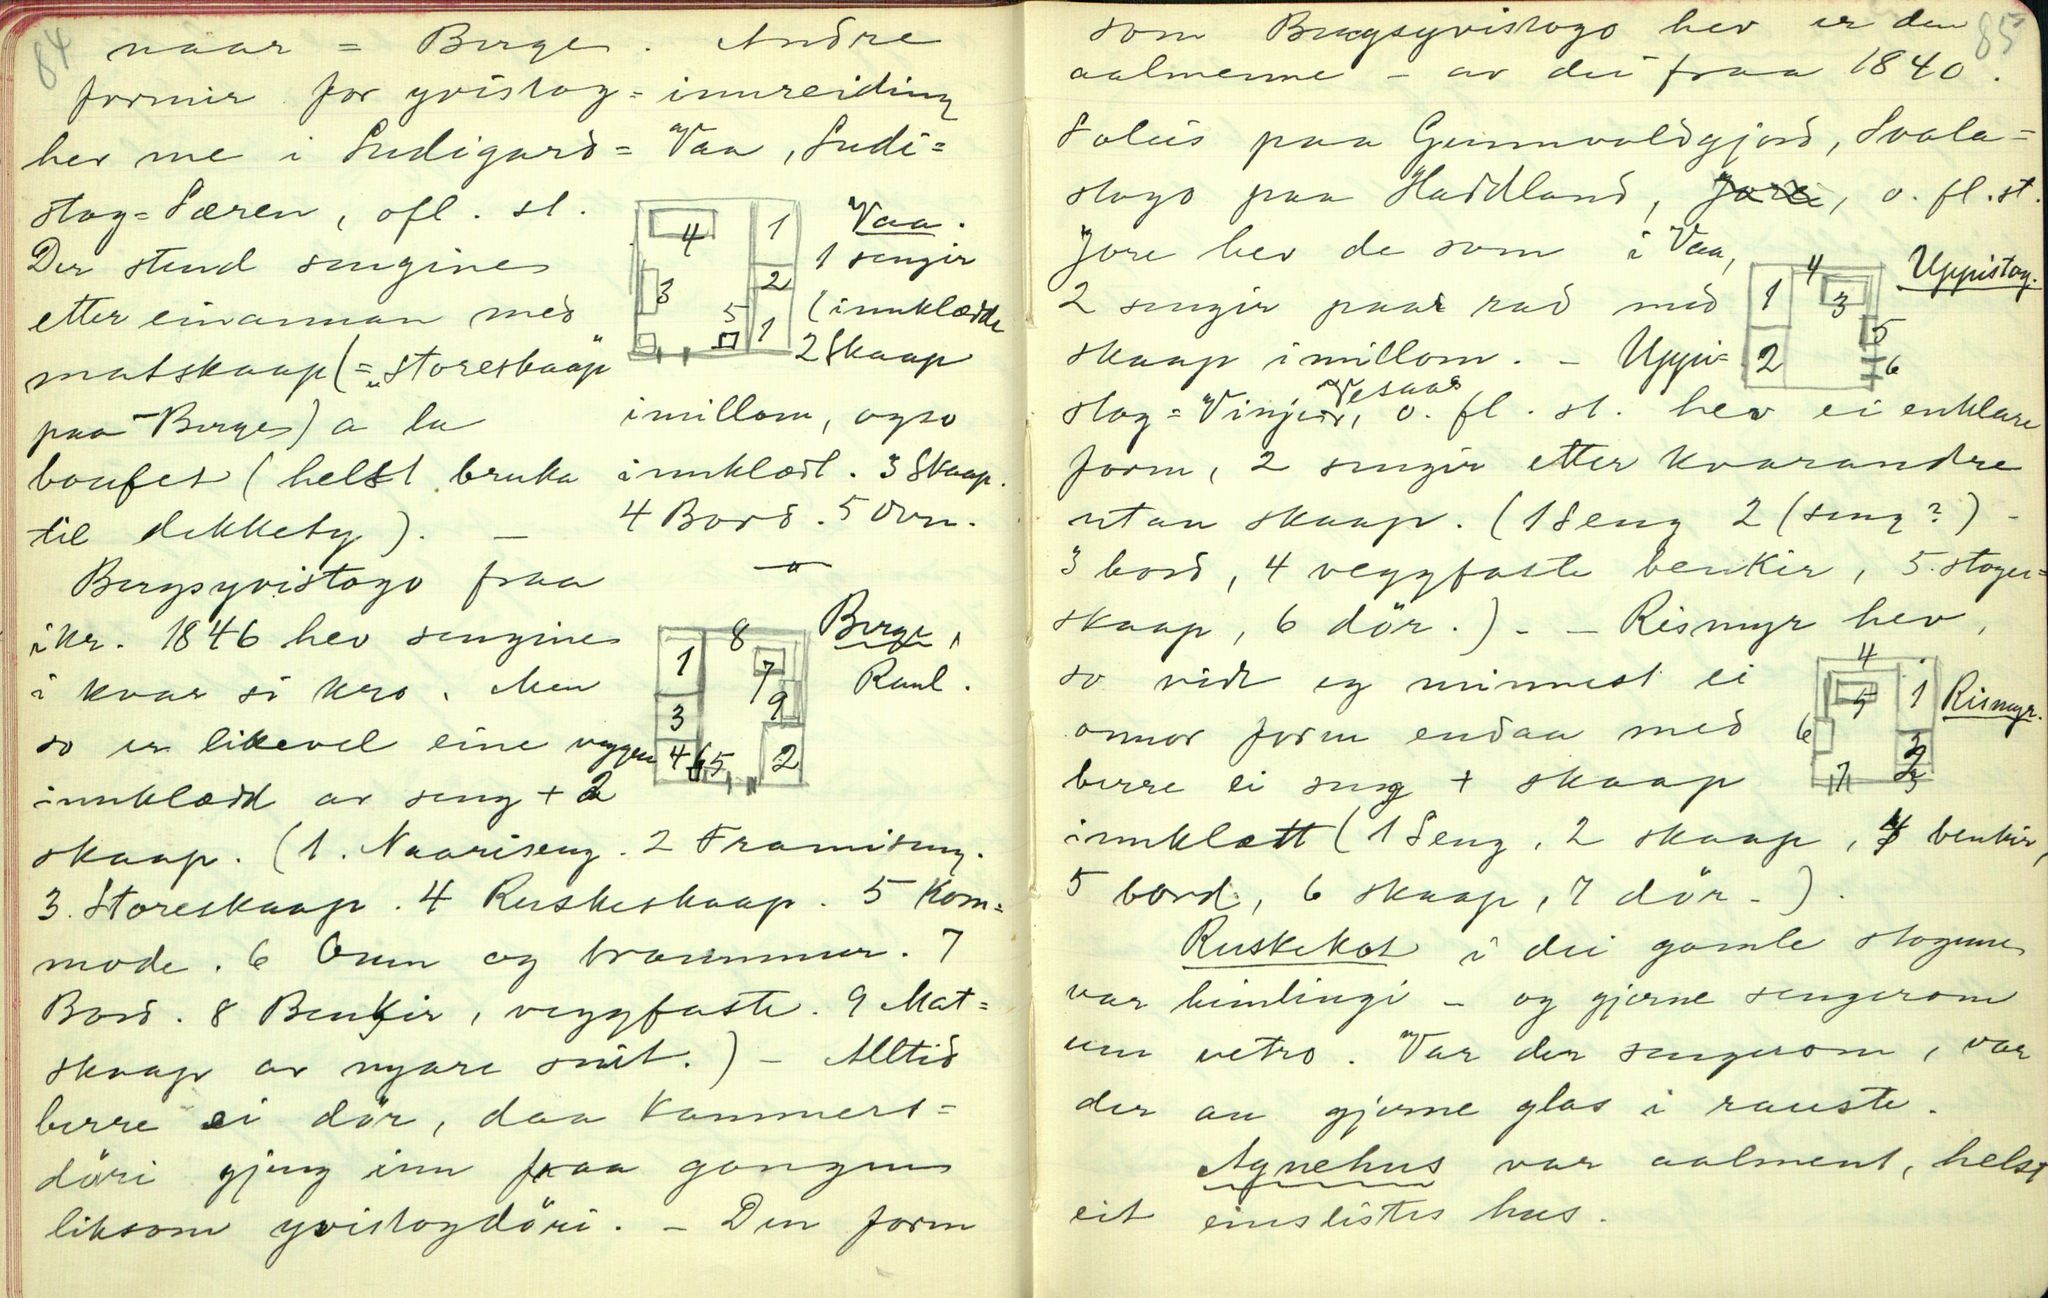 84
naar = Berge. Andre
formir for yvistog=innreiding
hev me i Sudigard=Vaa, Sudi=
stog=Særen, ofl. st.
Der stend sengine
etter einannan med
matskaap (= "storeskaap"
paa Berge) a la
boufet (helst bruka
til dekkety). —
4
1
3
2
5
1
Vaa.
1 sengir
(innklædde
2 Skaap
imillom, ogso
innklædt. 3 Skaap.
4 Bord. 5 Omn.
Bergsyvistogo fraa
ikr. 1846 hev sengine
i kvar si kro. Men
so er likevel eine veggen
innklædd av seng + 2
skaap. (1. Naariseng. 2 Framiseng.
3. Storeskaap. 4 Ruskeskaap. 5 Kom=
mode. 6 Omn og brannmur. 7
Bord. 8 Benkir, veggfaste. 9 Mat=
skaap av nyare snit.) — Alltid
berre ei dör, daa kammers=
döri gjeng inn fraa gangen
liksom yvistogdöri. — Den form
8
1
7
9
3
4 6 5
2
Berge,
Raul.
85
som Bergsyvistogo hev er den
aalmenne — av dei fraa 1840.
Soleis paa Gunnvaldgjord, Svala=
stogo paa Haddland, Jore, o. fl. st.
Jore hev de som i Vaa,
2 sengir paa rad med
skaap imillom. — Uppi=
stog=Vinje, Vesaas, o. fl. st. hev ei enklare
form, 2 sengir etter kvarandre
utan skaap. (1 Seng 2 (seng?) —
3 bord, 4 veggfaste benkir, 5. stoge=
skaap, 6 dör.) — — Rismyr hev,
so vidt eg minnest ei
onnor form endaa med
berre ei seng + skaap
innklætt (1 Seng, 2 skaap, 4 benkir,
5 bord, 6 skaap, 7 dör.).
4
1
3
5
2
6
Uppistog.
4
5
1
6
2
7
Rismyr.
Ruskekot i dei gamle stogune
var himlingi — og gjerne sengerom
um vetro. Var der sengerom, var
der au gjerne glas i rauste.
Agnehus var aalment, helst
eit einslistes hus.